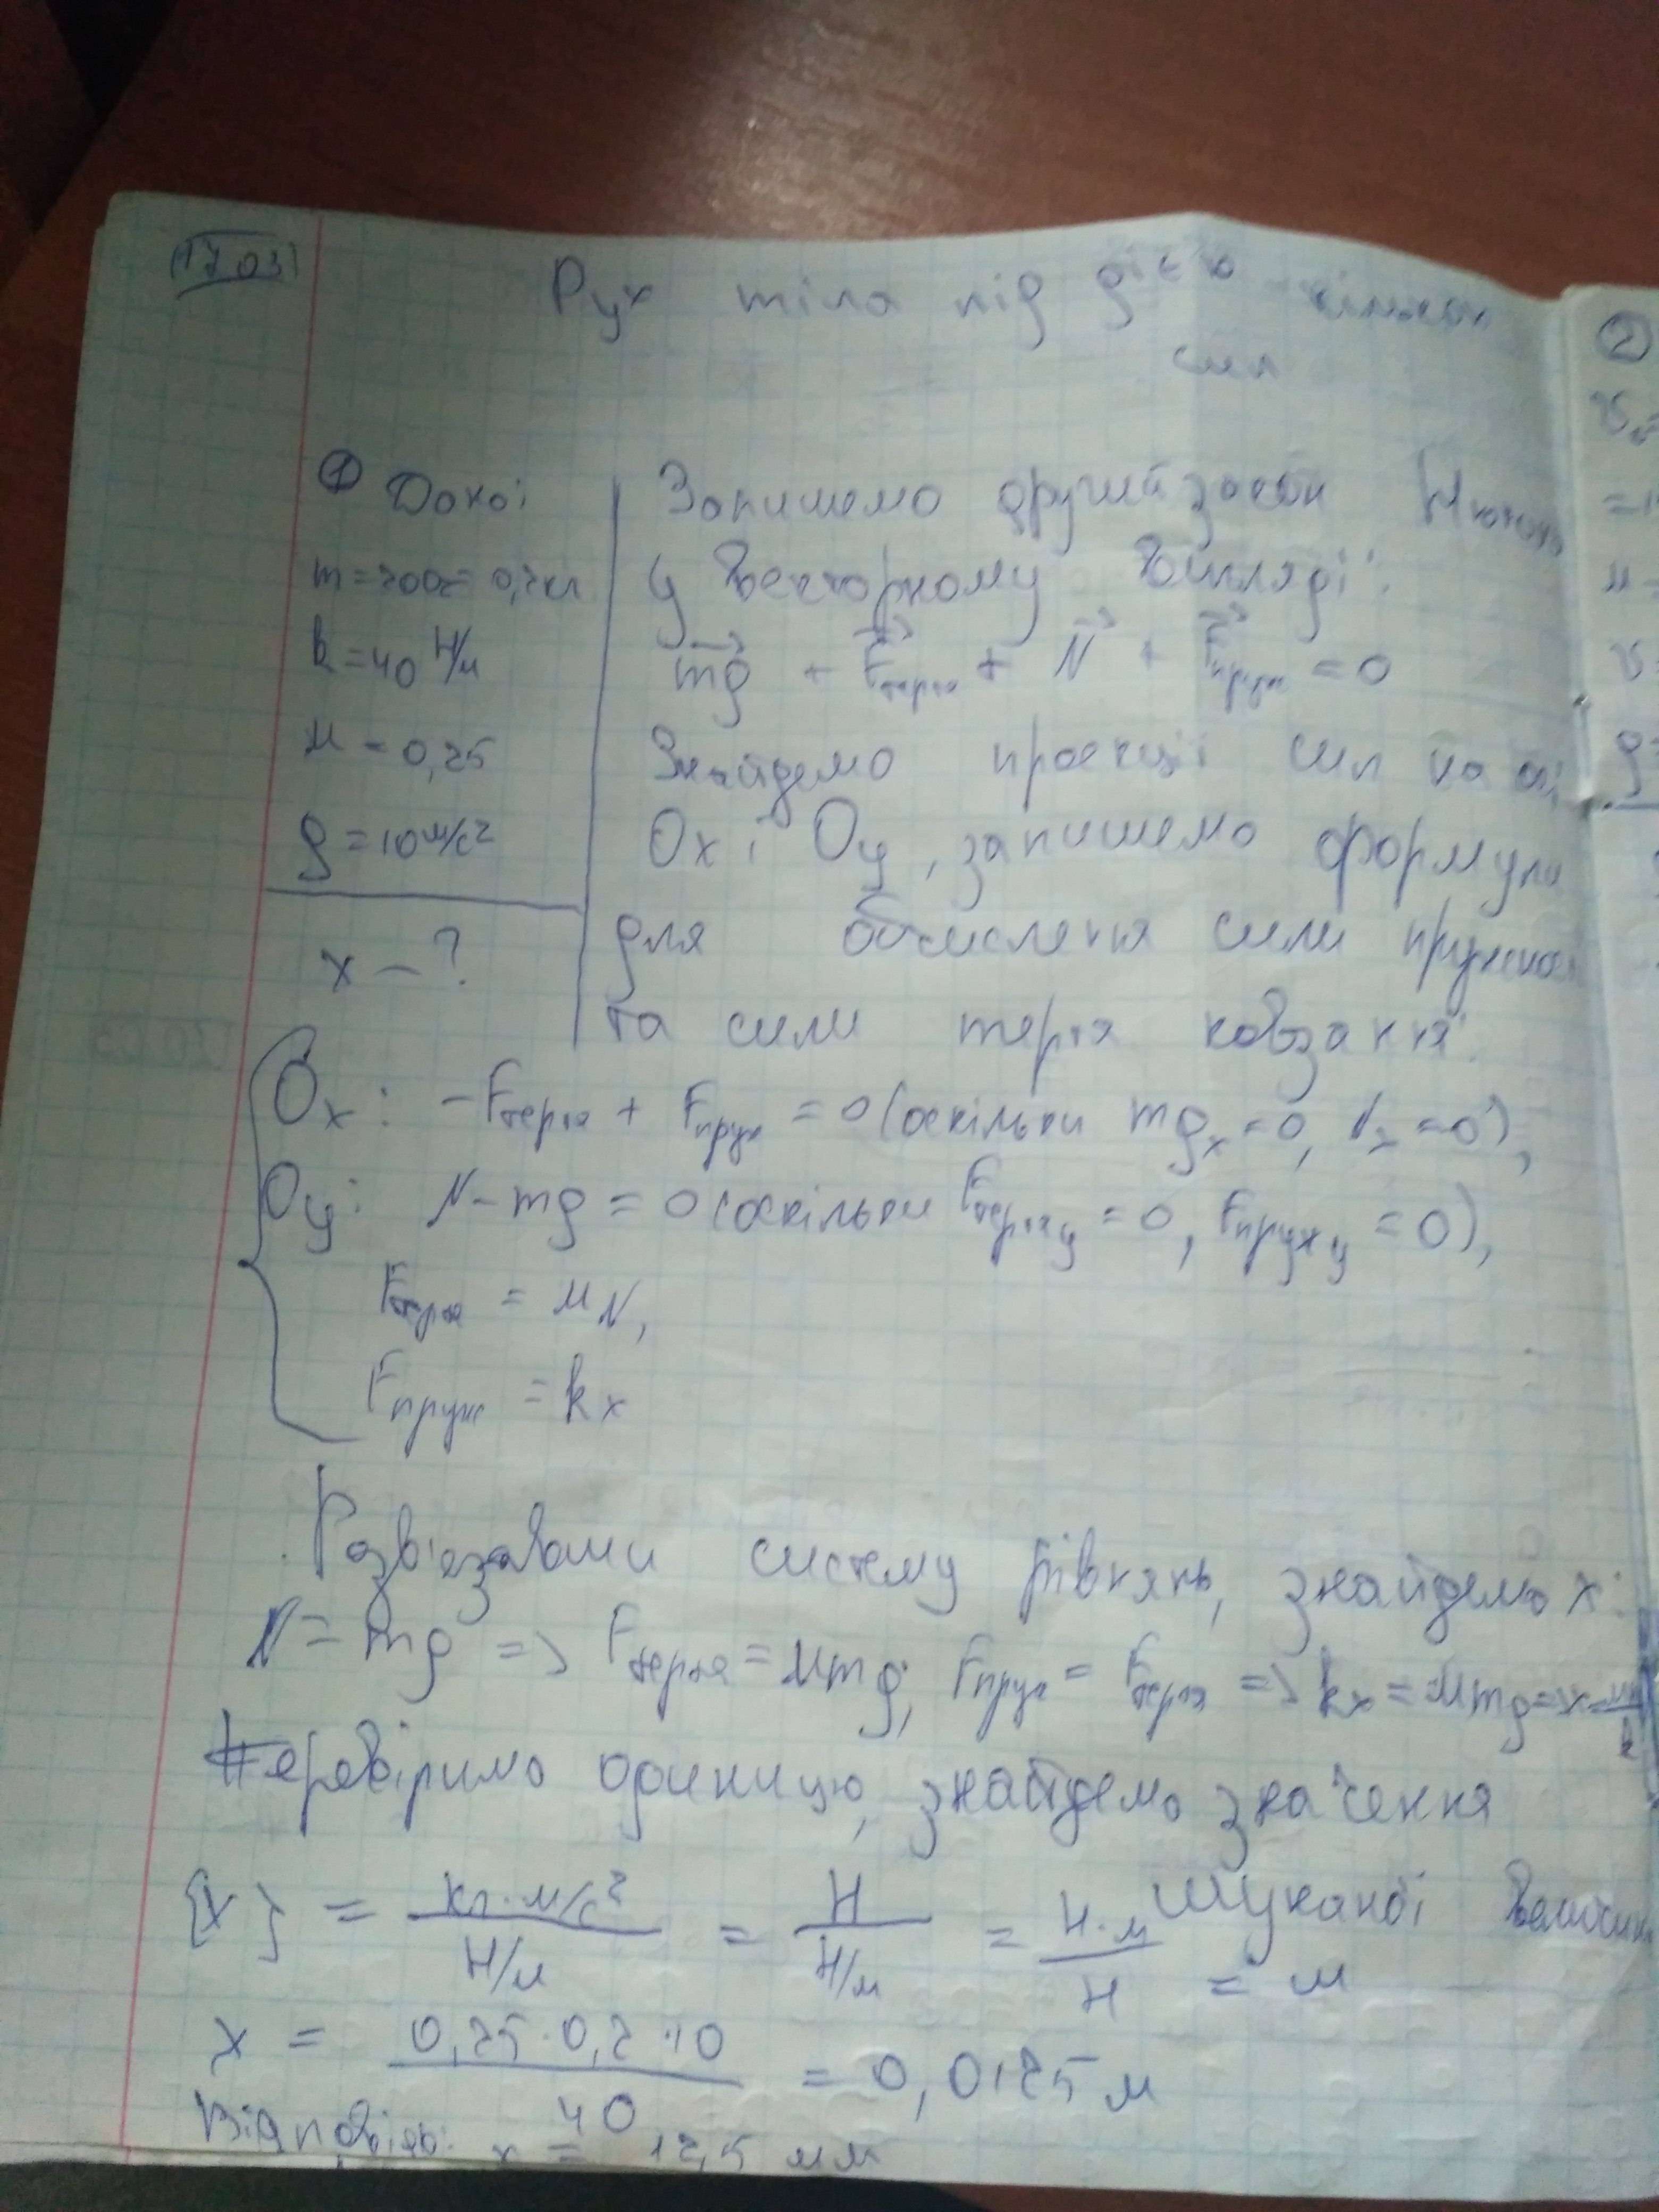 17.03
Рух тіла під дією кількох
сил
① Дано:
m = 200г = 0,2кг
k = 40 Н/м
μ = 0,25
g = 10 м/с²
x – ?
Запишемо другий закон Ньютона
у векторному вигляді:
mg + Fтертя + N + Fпруж = 0
Знайдемо проекції сил на осі
Ox і Oy, запишемо формули
для обчислення сили пружності
та сили тертя ковзання:
Ox: –Fтертя + Fпруж = 0 (оскільки mgx = 0, Nx = 0),
Oy: N – mg = 0 (оскільки Fтертя y = 0, Fпруж y = 0),
Fтертя = μN,
Fпруж = kx
Розв'язавши систему рівнянь, знайдемо x:
N = mg => Fтертя = μmg; Fпруж = Fтертя => kx = μmg => x =
Перевіримо одиницю, знайдемо значення
шуканої величини
{x} = кг·м/с² / Н/м = Н / Н/м = Н·м / Н = м
x = 0,25·0,2·10 / 40 = 0,0125 м
Відповідь: x = 12,5 мм
②